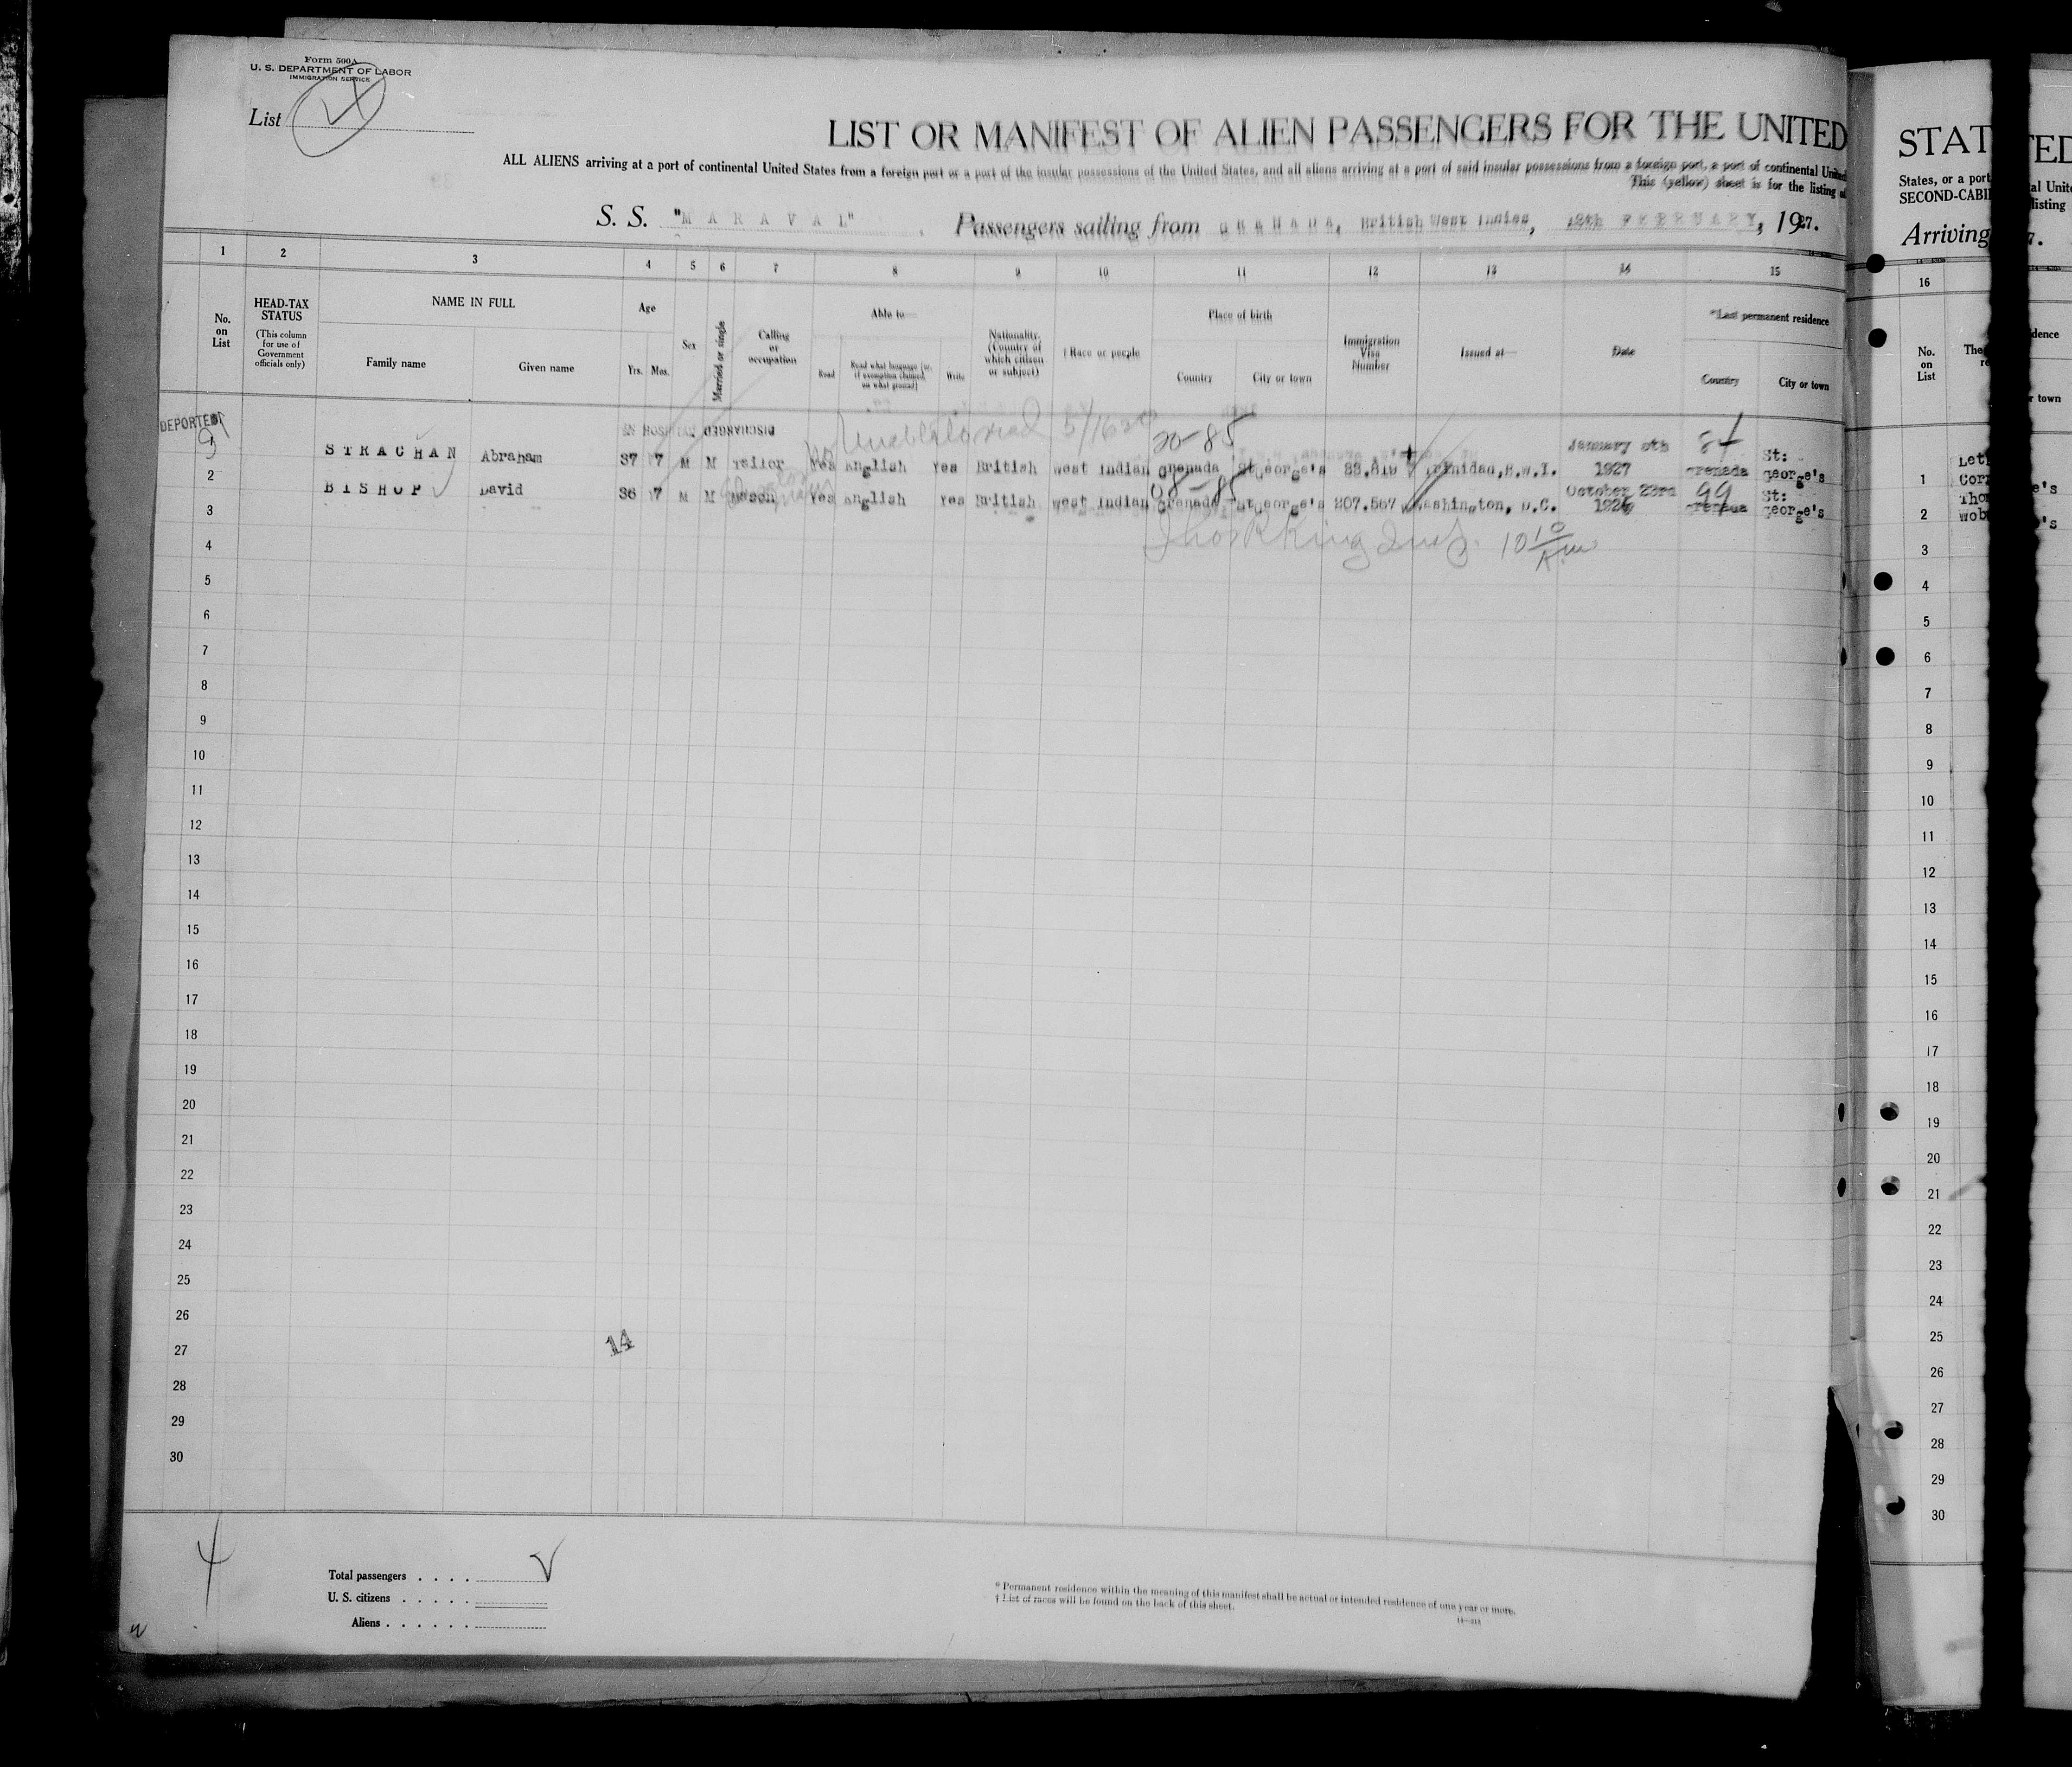 Form 500A
U. S. DEPARTMENT OF LABOR
IMMIGRATION SERVICE
List
LIST OR MANIFEST OF ALIEN PASSENGERS FOR THE UNITED
ALL ALIENS arriving at a port of continental United States from a foreign port or a port of the insular possessions of the United States, and all aliens arriving at a port of said insular possessions from a foreign port, a port of continental United
This (yellow) sheet is for the listing of
S. S. "MARAVAL" Passengers sailing from GRENADA, British West Indies, 12th FEBRUARY, 1927.
1 2 3 4 5 6 7 8 9 10 11 12 13 14 15
No. on List
HEAD-TAX STATUS (This column for use of Government officials only)
NAME IN FULL
Family name Given name
Age
Yrs. Mos.
Sex
Married or single
Calling or occupation
Able to—
Read Read what language (or, if exemption claimed, on what ground) Write
Nationality. (Country of which citizen or subject)
† Race or people
Place of birth
Country City or town
Immigration Visa Number
Issued at—
Date
*Last permanent residence
Country City or town
DEPORTED
IN HOSPITAL DISCHARGED
Unable to read 5/16
20-85
84
1 STRACHAN Abraham 37 7 M M Tailor Yes English Yes British West Indian Grenada St. George's Trinidad, B.W.I. January 1927 Grenada St: George's
08-85
99
2 BISHOP David 36 7 M M Mason Yes English Yes British West Indian Grenada St. George's 207.567 Washington, D.C. October 23rd 1926 Grenada St: George's
3
Thos R King Insp. 10 10/Am
4
5
6
7
8
9
10
11
12
13
14
15
16
17
18
19
20
21
22
23
24
25
26
27
28
29
30
14
4
Total passengers
U. S. citizens
Aliens
* Permanent residence within the meaning of this manifest shall be actual or intended residence of one year or more.
† List of races will be found on the back of this sheet.
STAT
States, or a port
SECOND-CABI
Arriving
16
No. on List
The
1
2
3
4
5
6
7
8
9
10
11
12
13
14
15
16
17
18
19
20
21
22
23
24
25
26
27
28
29
30